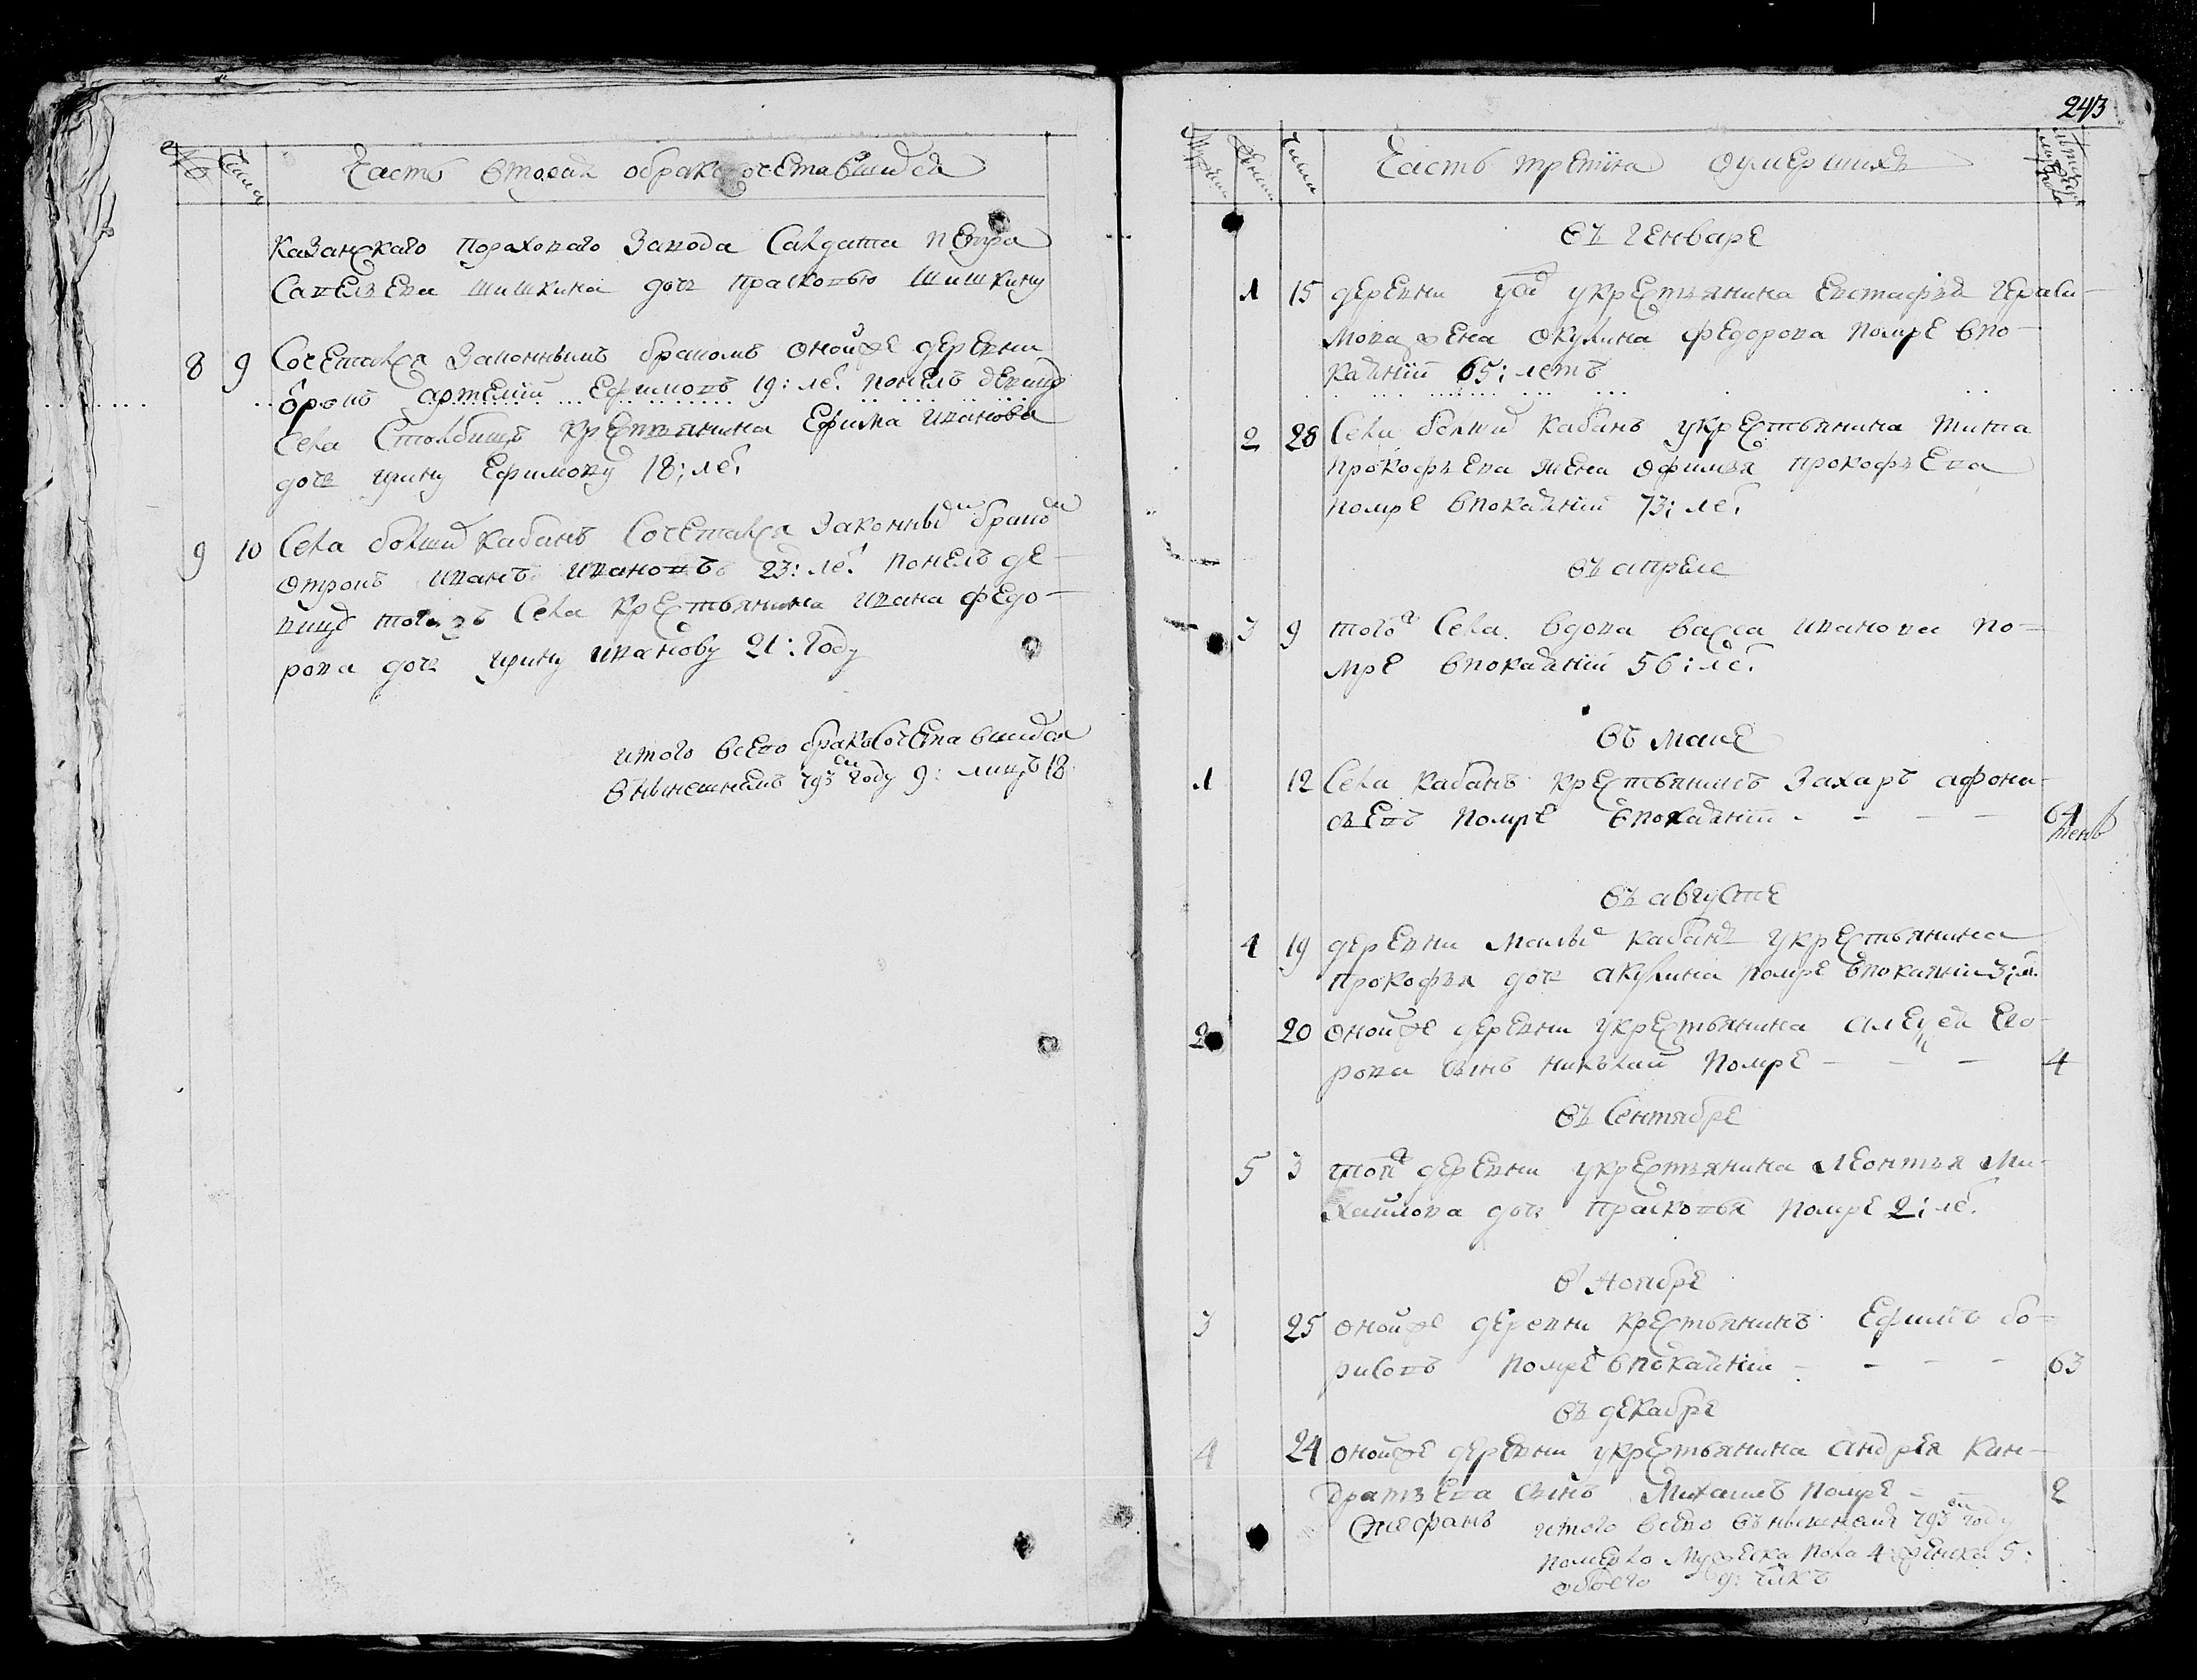 №
Числа
Часть вторая обракосочетавшихся
Казанскаго порахопаго Завода Салдата Петра
Савельева Шишкина дочь Прасковью Шишкину
8 9 Сочетался Законнымъ бракомъ оной же деревни
отрокъ Артемій Ефимовъ 19: ле понелъ девицу
Села Столбищъ крестьянина Ефима Иванова
дочь ирину Ефимову 18: ле
9 10 Села болших Кабанъ Сочетался Законны брако
отрокъ иванъ ивановъ 23: ле понелъ де-
вицу тогожъ Села крестьянина ивана федо-
рова дочь ирину иванову 21: году
итого всего бракосочетавшихся
внынешнемъ 793 году 9: лицъ 18
243
Часть третия оумершихъ
Числа
въ генваре
1 15 деревни укрестьянина Евстафия гераси-
мова жена окулина федорова помре впо-
каянии 65: летъ
2 28 Села болших Кабанъ укрестьянина Тита
прокофьева жена офимья прокофьева
помре впокаянии 73: ле
въ апреле
3 9 того Села вдова васса иванова по-
мре впокаянии 56: ле
въ маие
1 12 Села Кабанъ крестьянинъ Захаръ афона-
сьевъ помре впокаянии - - - - 64
въ августе
4 19 деревни Малы Кабанъ укрестьянина
прокофья дочь акулина помре впокаянии 3: л
2 20 оной же деревни укрестьянина алексея его-
рова сынъ николай помре - - - 4
въ Сентябре
5 3 той деревни укрестьянина Леонтья Ми-
хайлова дочь прасковья помре 2: ле
в Ноябре
3 25 оной же деревни крестьянинъ Ефимъ бо-
рисовъ помре впокаянии - - - - 63
въ декабре
4 24 оной же деревни укрестьянина андрея Кан-
дратьева сынъ Михаилъ помре - - 2
Стефанъ итого всего въ нынешнемъ 793 году
померло мужеска пола 4 женска 5:
обоего 9: члкъ